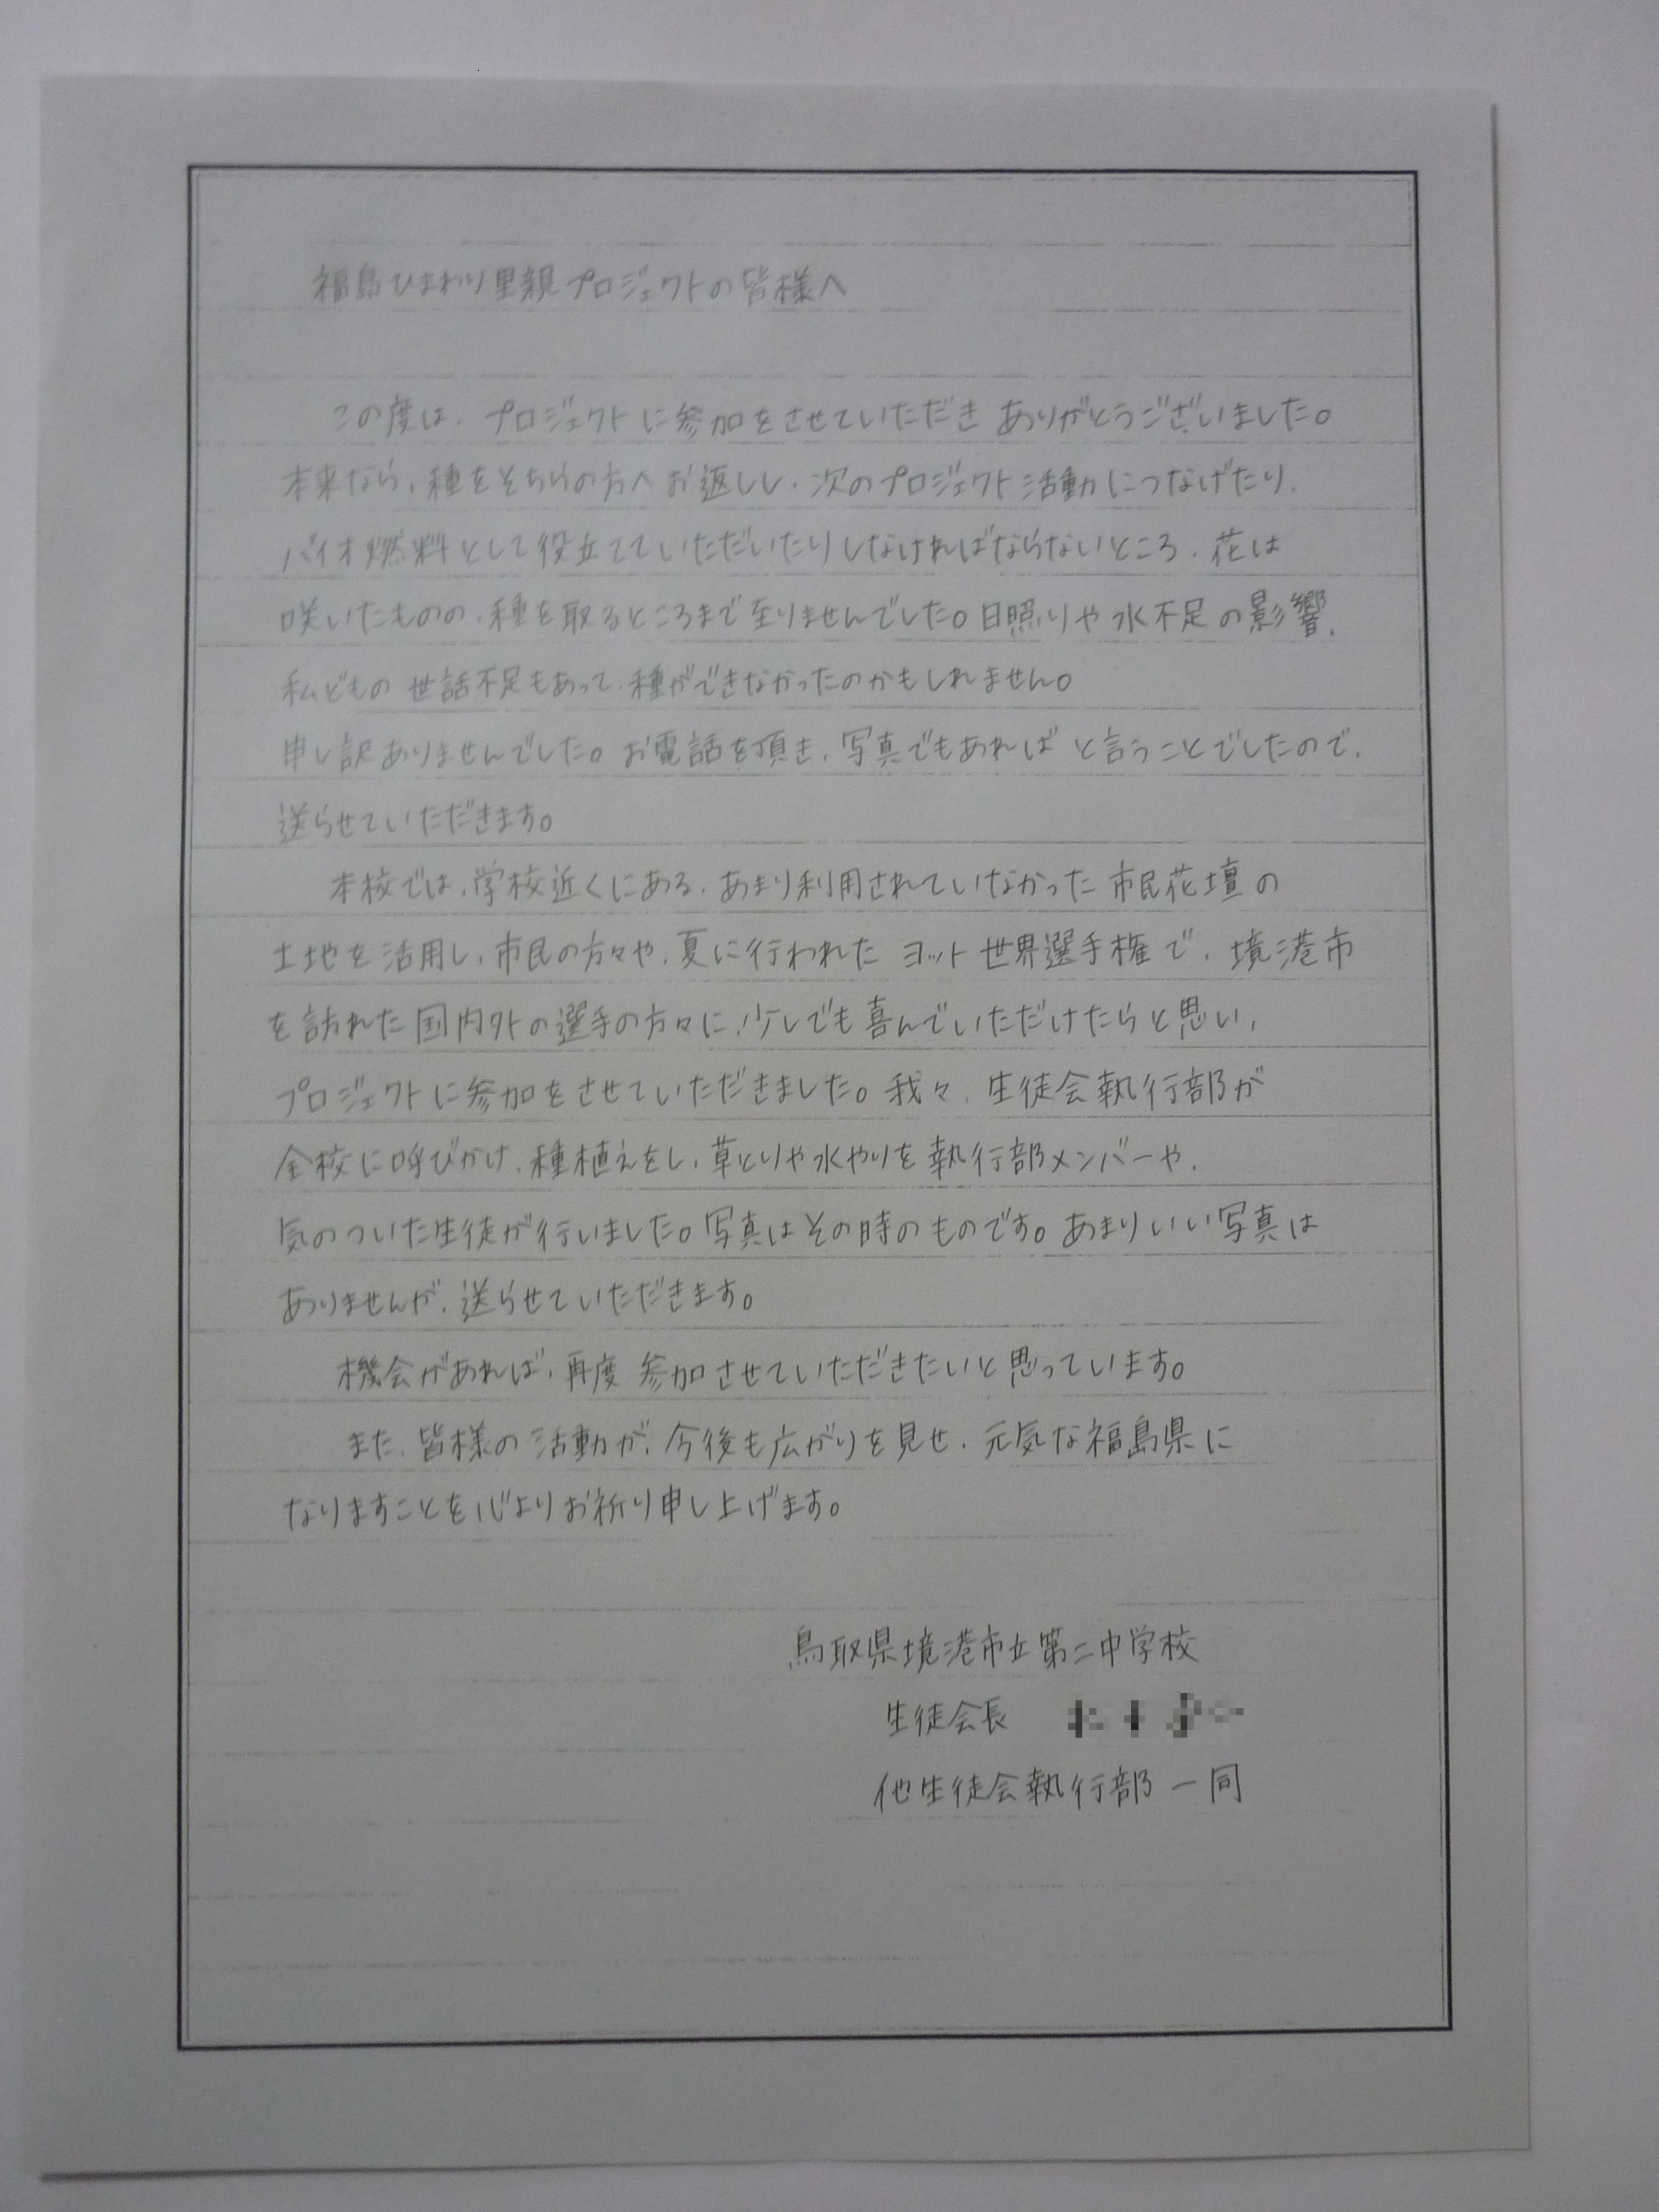 福島ひまわり里親プロジェクトの皆様へ
この度は、プロジェクトに参加をさせていただき ありがとうございました。
本来なら、種をそちらの方へお返しし、次のプロジェクト活動につなげたり、
バイオ燃料として役立てていただいたりしなければならないところ、花は
咲いたものの、種を取るところまで至りませんでした。日照りや水不足の影響、
私どもの 世話不足もあって、種ができなかったのかもしれません。
申し訳ありませんでした。お電話を頂き、写真でもあれば と言うことでしたので、
送らせていただきます。
本校では、学校近くにある、あまり利用されていなかった 市民花壇の
土地を活用し、市民の方々や、夏に行われた ヨット世界選手権で、境港市
を訪れた国内外の選手の方々に、少しでも喜んでいただけたらと思い、
プロジェクトに参加をさせていただきました。我々、生徒会執行部が
全校に呼びかけ、種植えをし、草とりや水やりを執行部メンバーや、
気のついた生徒が行いました。写真はその時のものです。あまりいい写真は
ありませんが、送らせていただきます。
機会があれば、再度 参加させていただきたいと思っています。
また、皆様の活動が、今後も広がりを見せ、元気な福島県に
なりますことを心よりお祈り申し上げます。
鳥取県境港市立第二中学校
生徒会長
他生徒会執行部 一同